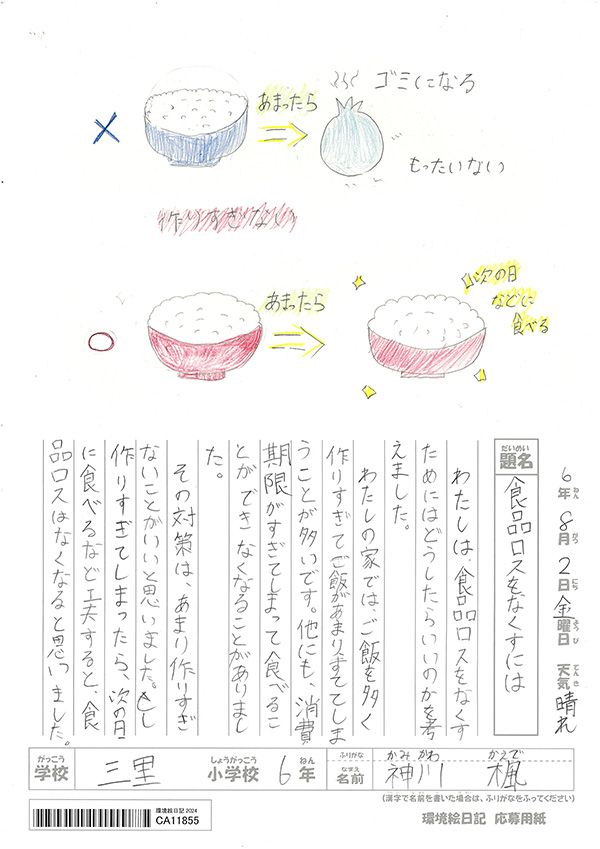 あまったら
ゴミになる
もったいない
作りすぎない
あまったら
次の日
などに
食べる
6年 8月 2日 金曜日 天気 晴れ
ねん がつ にち ようび てんき
だいめい
題名
食品ロスをなくすには
わたしは、食品ロスをなくす
ためにはどうしたらいいのかを考
えました。
わたしの家では、ご飯を多く
作りすぎてご飯があまりすててしま
うことが多いです。他にも、消費
期限がすぎてしまって食べるこ
とができなくなることがありまし
た。
その対策は、あまり作りすぎ
ないことがいいと思いました。もし
作りすぎてしまったら、次の日
に食べるなど工夫すると、食
品ロスはなくなると思いました。
がっこう しょうがっこう ねん ふりがな かみかわ かえで
学校 三里 小学校 6年 なまえ 名前 神川 楓
(漢字で名前を書いた場合は、ふりがなをふってください)
環境絵日記 2024
CA11855
環境絵日記 応募用紙